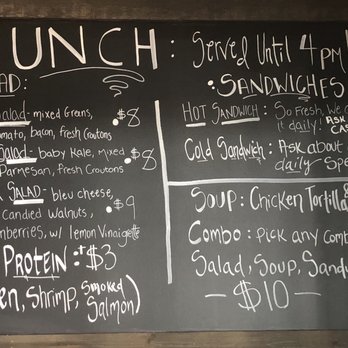 UNCH: Served Until 4 pm!
AD:
Salad- mixed Greens, $8
omato, bacon, Fresh Croutons
Salad- baby Kale, mixed $8
Parmeson, Fresh Croutons
SALAD- bleu cheese, $9
Candied Walnuts,
nberries, w/ lemon Vinaigette
PROTEIN: + $3
en, Shrimp, Smoked Salmon)
:SANDWICHES
HOT SANDWICH: So Fresh, We c
it daily! ASK
CAS
Cold Sandwich: ASK about
daily Spe
SOUP: Chicken Tortilla
Combo: pick any comb
Salad, Soup, Sandw
- $10 -